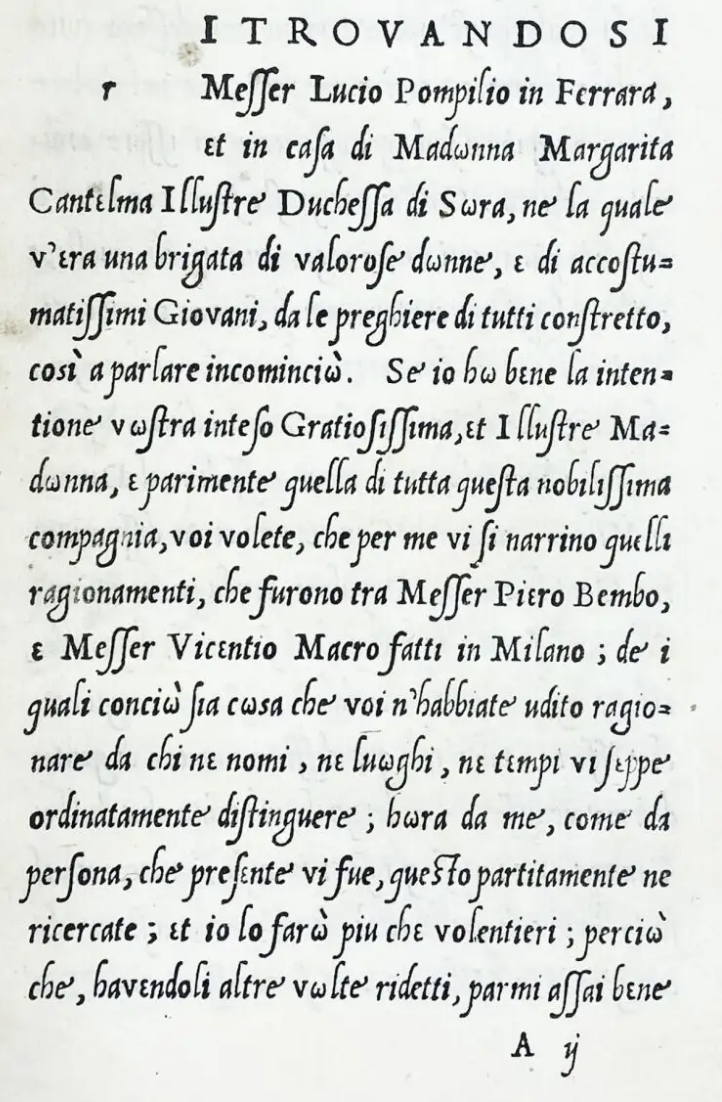 ITROVANDOSI
r Meſſer Lucio Pompilio in Ferrara,
et in caſa di Madωnna Margarita
Cantεlma Illuſtre Ducheſſa di Sωra, ne la quale
v'εra una brigata di valoroſe dωnne, ε di accoſtu=
matiſſimi Giovani, da le preghiere di tutti conſtretto,
così a parlare incominciὼ. Se io hω bεne la inten=
tione vωſtra inteſo Gratioſiſſima, εt Illuſtre Ma=
dωnna, ε parimente quella di tutta queſta nobiliſſima
compagnia, voi volete, che per me vi ſi narrino quelli
ragionamenti, che furono tra Meſſer Piεro Bembo,
ε Meſſer Vicεntio Macro fatti in Milano ; de i
quali conciὼ ſia cωsa che voi n'habbiate udito ragio=
nare da chi nε nomi, nε luωghi, nε tεmpi vi ſεppe
ordinatamente diſtinguere ; hωra da me, come da
perſona, che preſεnte vi fue, queſto partitamente ne
ricercate ; εt io lo farὼ piu chε volentieri ; perciὼ
che, havεndoli altre vωlte ridetti, parmi aſſai bεne
A ij